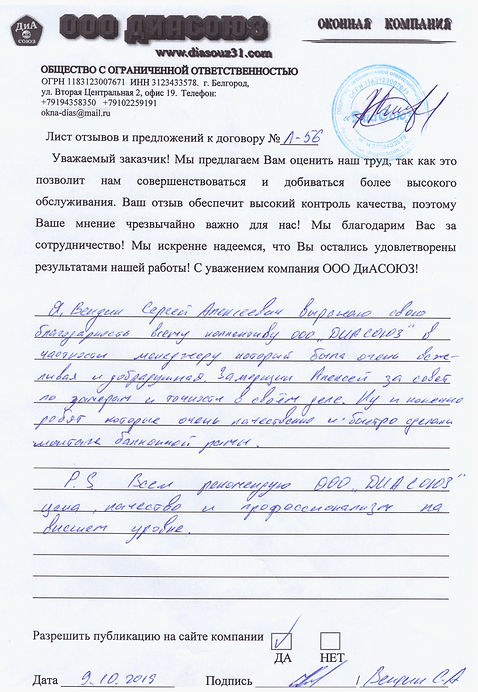 ДиА
СОЮЗ
ООО ДИАСОЮЗ
ОКОННАЯ КОМПАНИЯ
www.diasouz31.com
ОБЩЕСТВО С ОГРАНИЧЕННОЙ ОТВЕТСТВЕННОСТЬЮ
ОГРН 1183123007671 ИНН 3123433578. г. Белгород,
ул. Вторая Центральная 2, офис 19. Телефон:
+79194358350 +79102259191
okna-dias@mail.ru
Лист отзывов и предложений к договору № Л-56
Уважаемый заказчик! Мы предлагаем Вам оценить наш труд, так как это
позволит нам совершенствоваться и добиваться более высокого
обслуживания. Ваш отзыв обеспечит высокий контроль качества, поэтому
Ваше мнение чрезвычайно важно для нас! Мы благодарим Вас за
сотрудничество! Мы искренне надеемся, что Вы остались удовлетворены
результатами нашей работы! С уважением компания ООО ДиАСОЮЗ!
Я, Сергей Алексеевич выражаю свою
благодарность всему коллективу ООО „ДИАСОЮЗ" в
частности менеджеру который была очень веж-
ливая и добродушная. Алексей за совет
по замерам и точности в своём деле. Ну и конечно
робят которые очень качественно и быстро сделали
монтаж балконной рамы.
P.S. Всем рекомендую ООО „ДИАСОЮЗ"
цена, качество и профессионализм на
высшем уровне.
Разрешить публикацию на сайте компании
ДА НЕТ
Дата 9.10.2019 Подпись / С.А